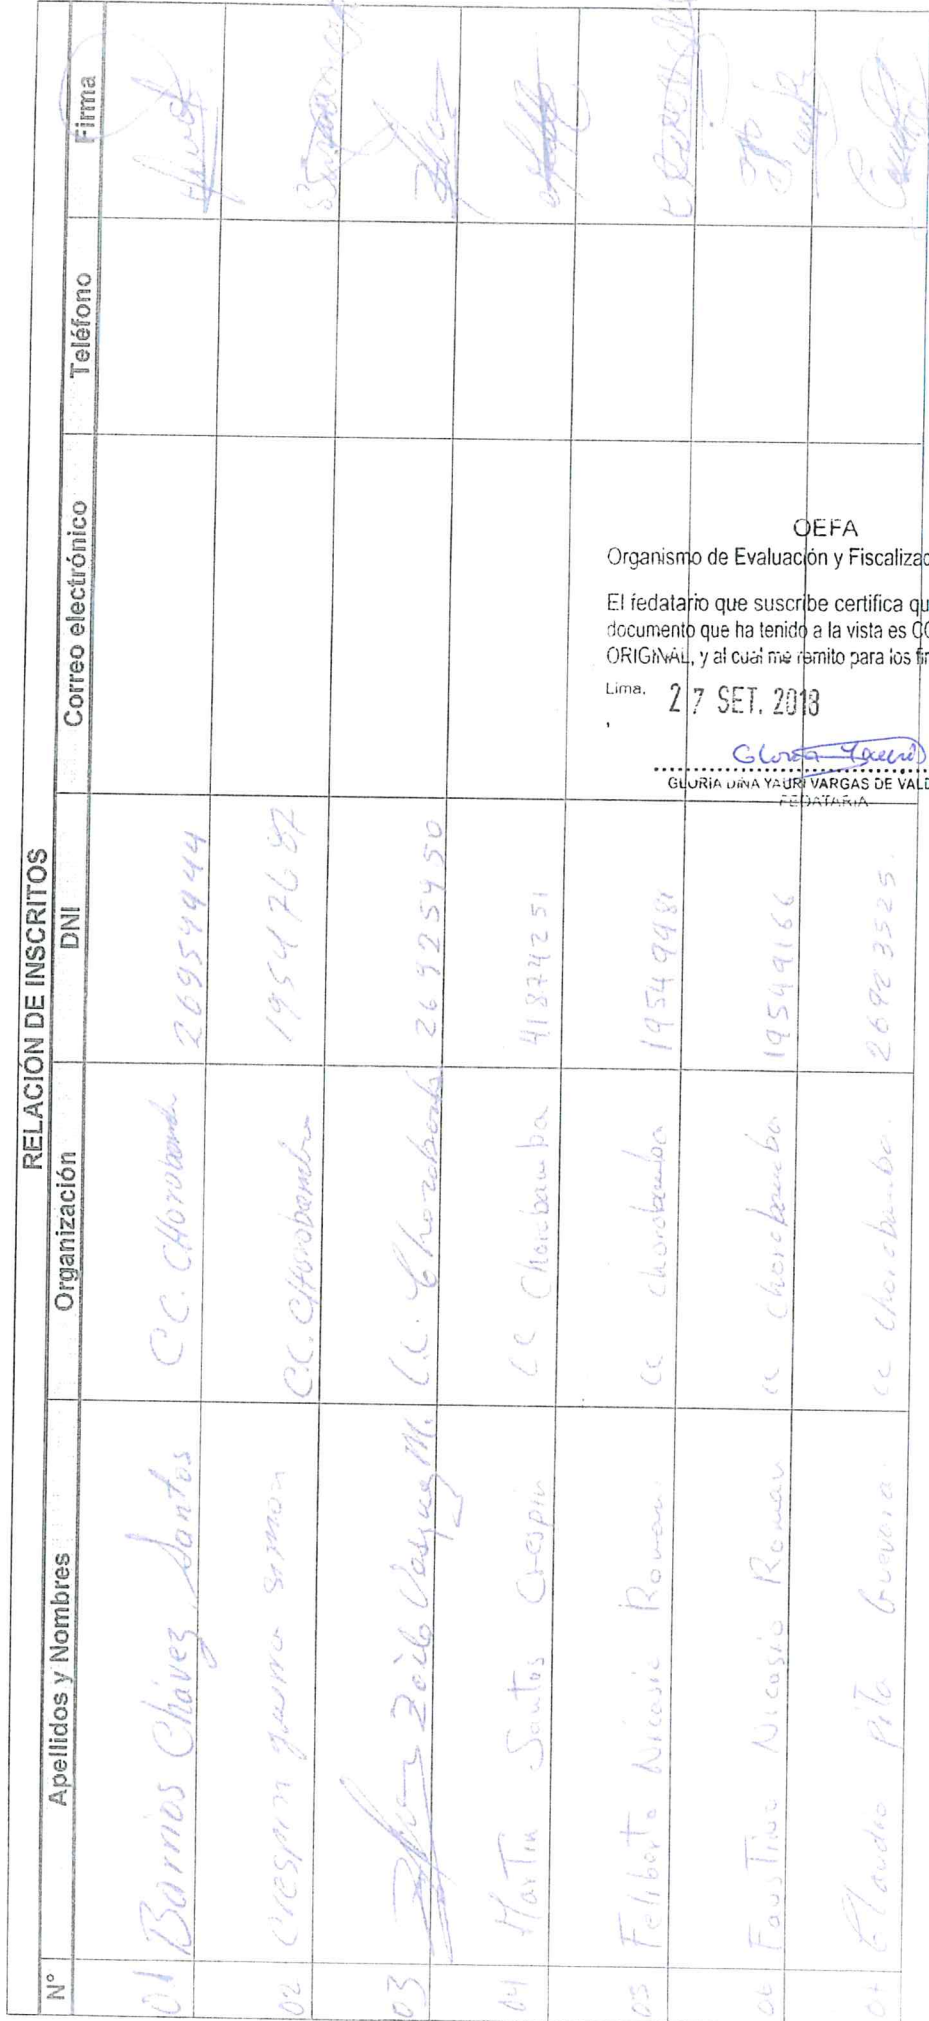 RELACIÓN DE INSCRITOS
N° Apellidos y Nombres Organización DNI Correo electrónico Teléfono Firma
01 Barrios Chávez, Santos C.C. CHorobamba 26954944
02 crespin simon C.C. CHorobamba 19547687
03 Zoilo Vasquez M. C.C. Chorobamba 26925450
04 Martin Santos Crespin CC Chorobamba 41874251
05 Feliberto Nicasio Roman CC chorobamba 19549481
06 Faustino Nicasio Roman CC chorobamba 19549166
07 Claudio Pita Guevara CC chorobamba. 26923525.
OEFA
Organismo de Evaluación y
El fedatario que suscribe certifica
documento que ha tenido a la vista es
ORIGINAL, y al cual me remito para los
Lima, 27 SET. 2018
GLORIA DINA YAURI VARGAS DE
FEDATARIA